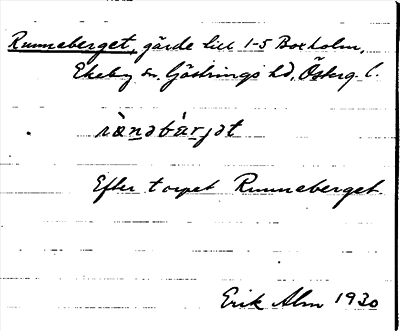 Runneberget, gärde till 1-5 Boxholm,
Ekeby sn. Göstrings hd, Österg. l.
rànəbàrjət
Efter torpet Runneberget
Erik Alm 1930